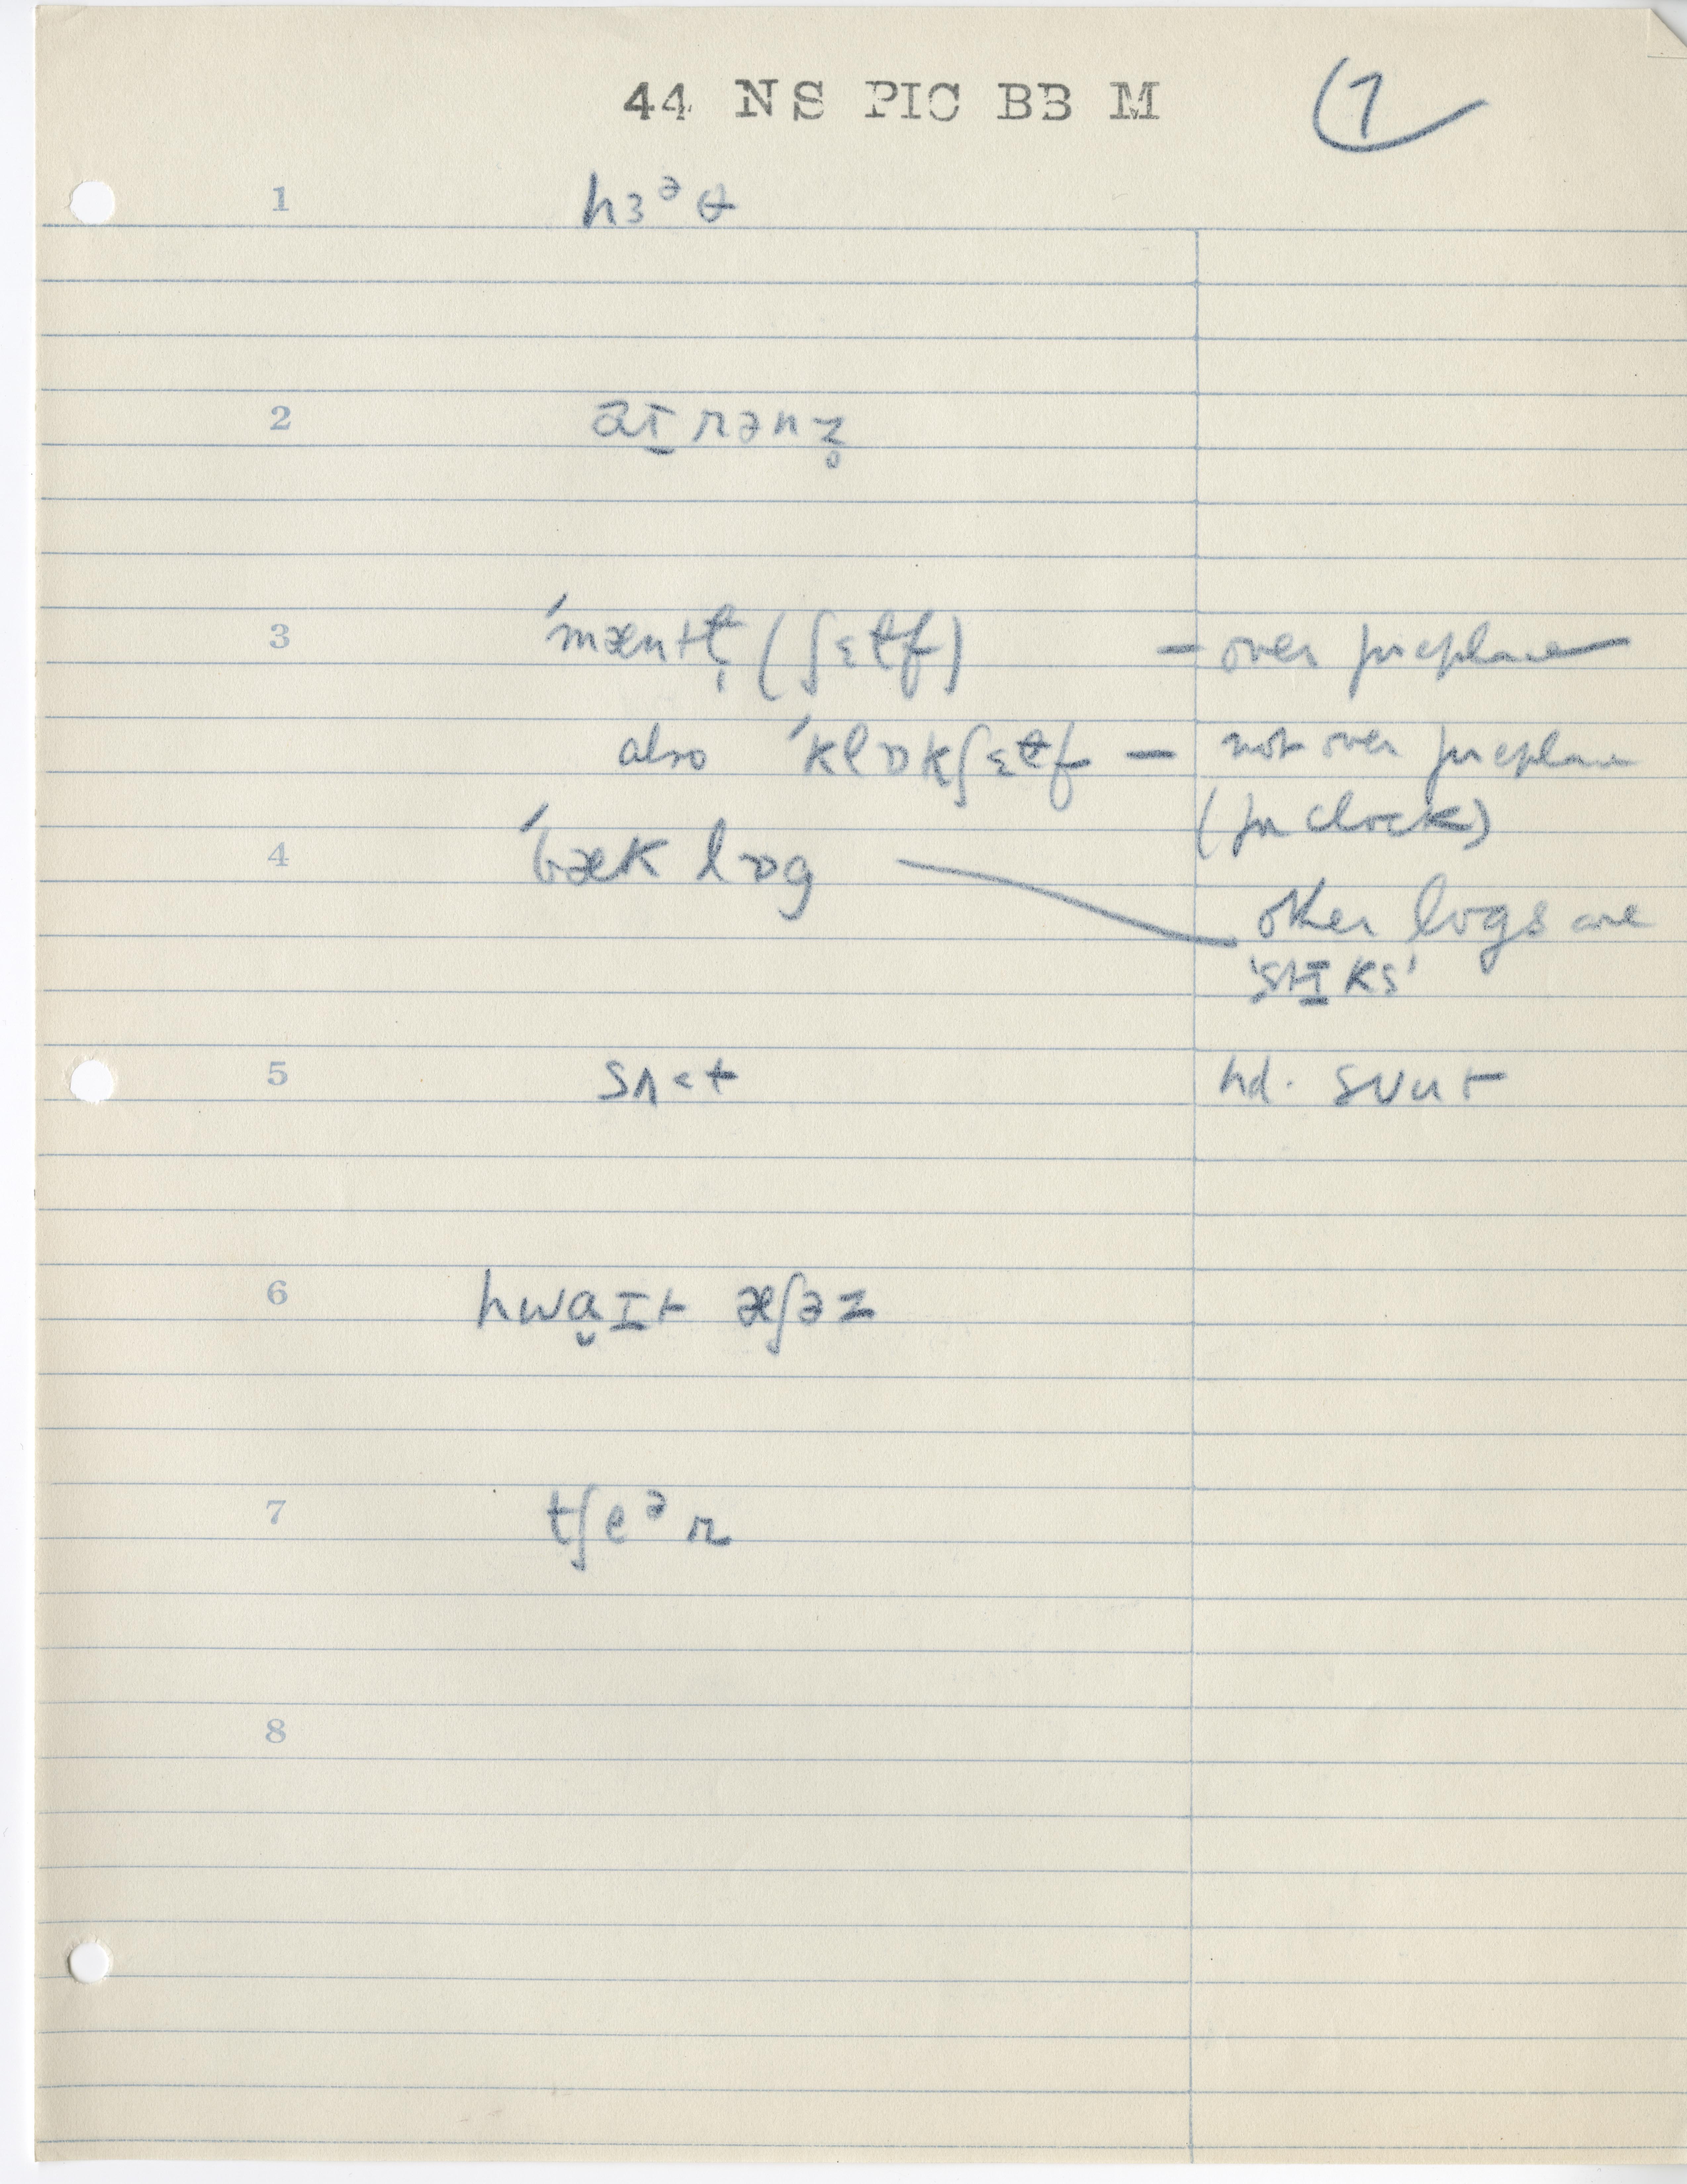 44 NS PIC BB M 7
1 hɜᵊθ
2 aɪrənz̥
3 ˈmæntɫ̩ (ʃɛɫf) — over fireplace
also ˈklɒkʃɛɫf — not over fireplace
(for clock)
4 ˈbæk lɒg other logs are
'stɪks'
5 sʌ<t hd. sʊut
6 hwa̬ɪt æʃəz
7 tʃeᵊr
8